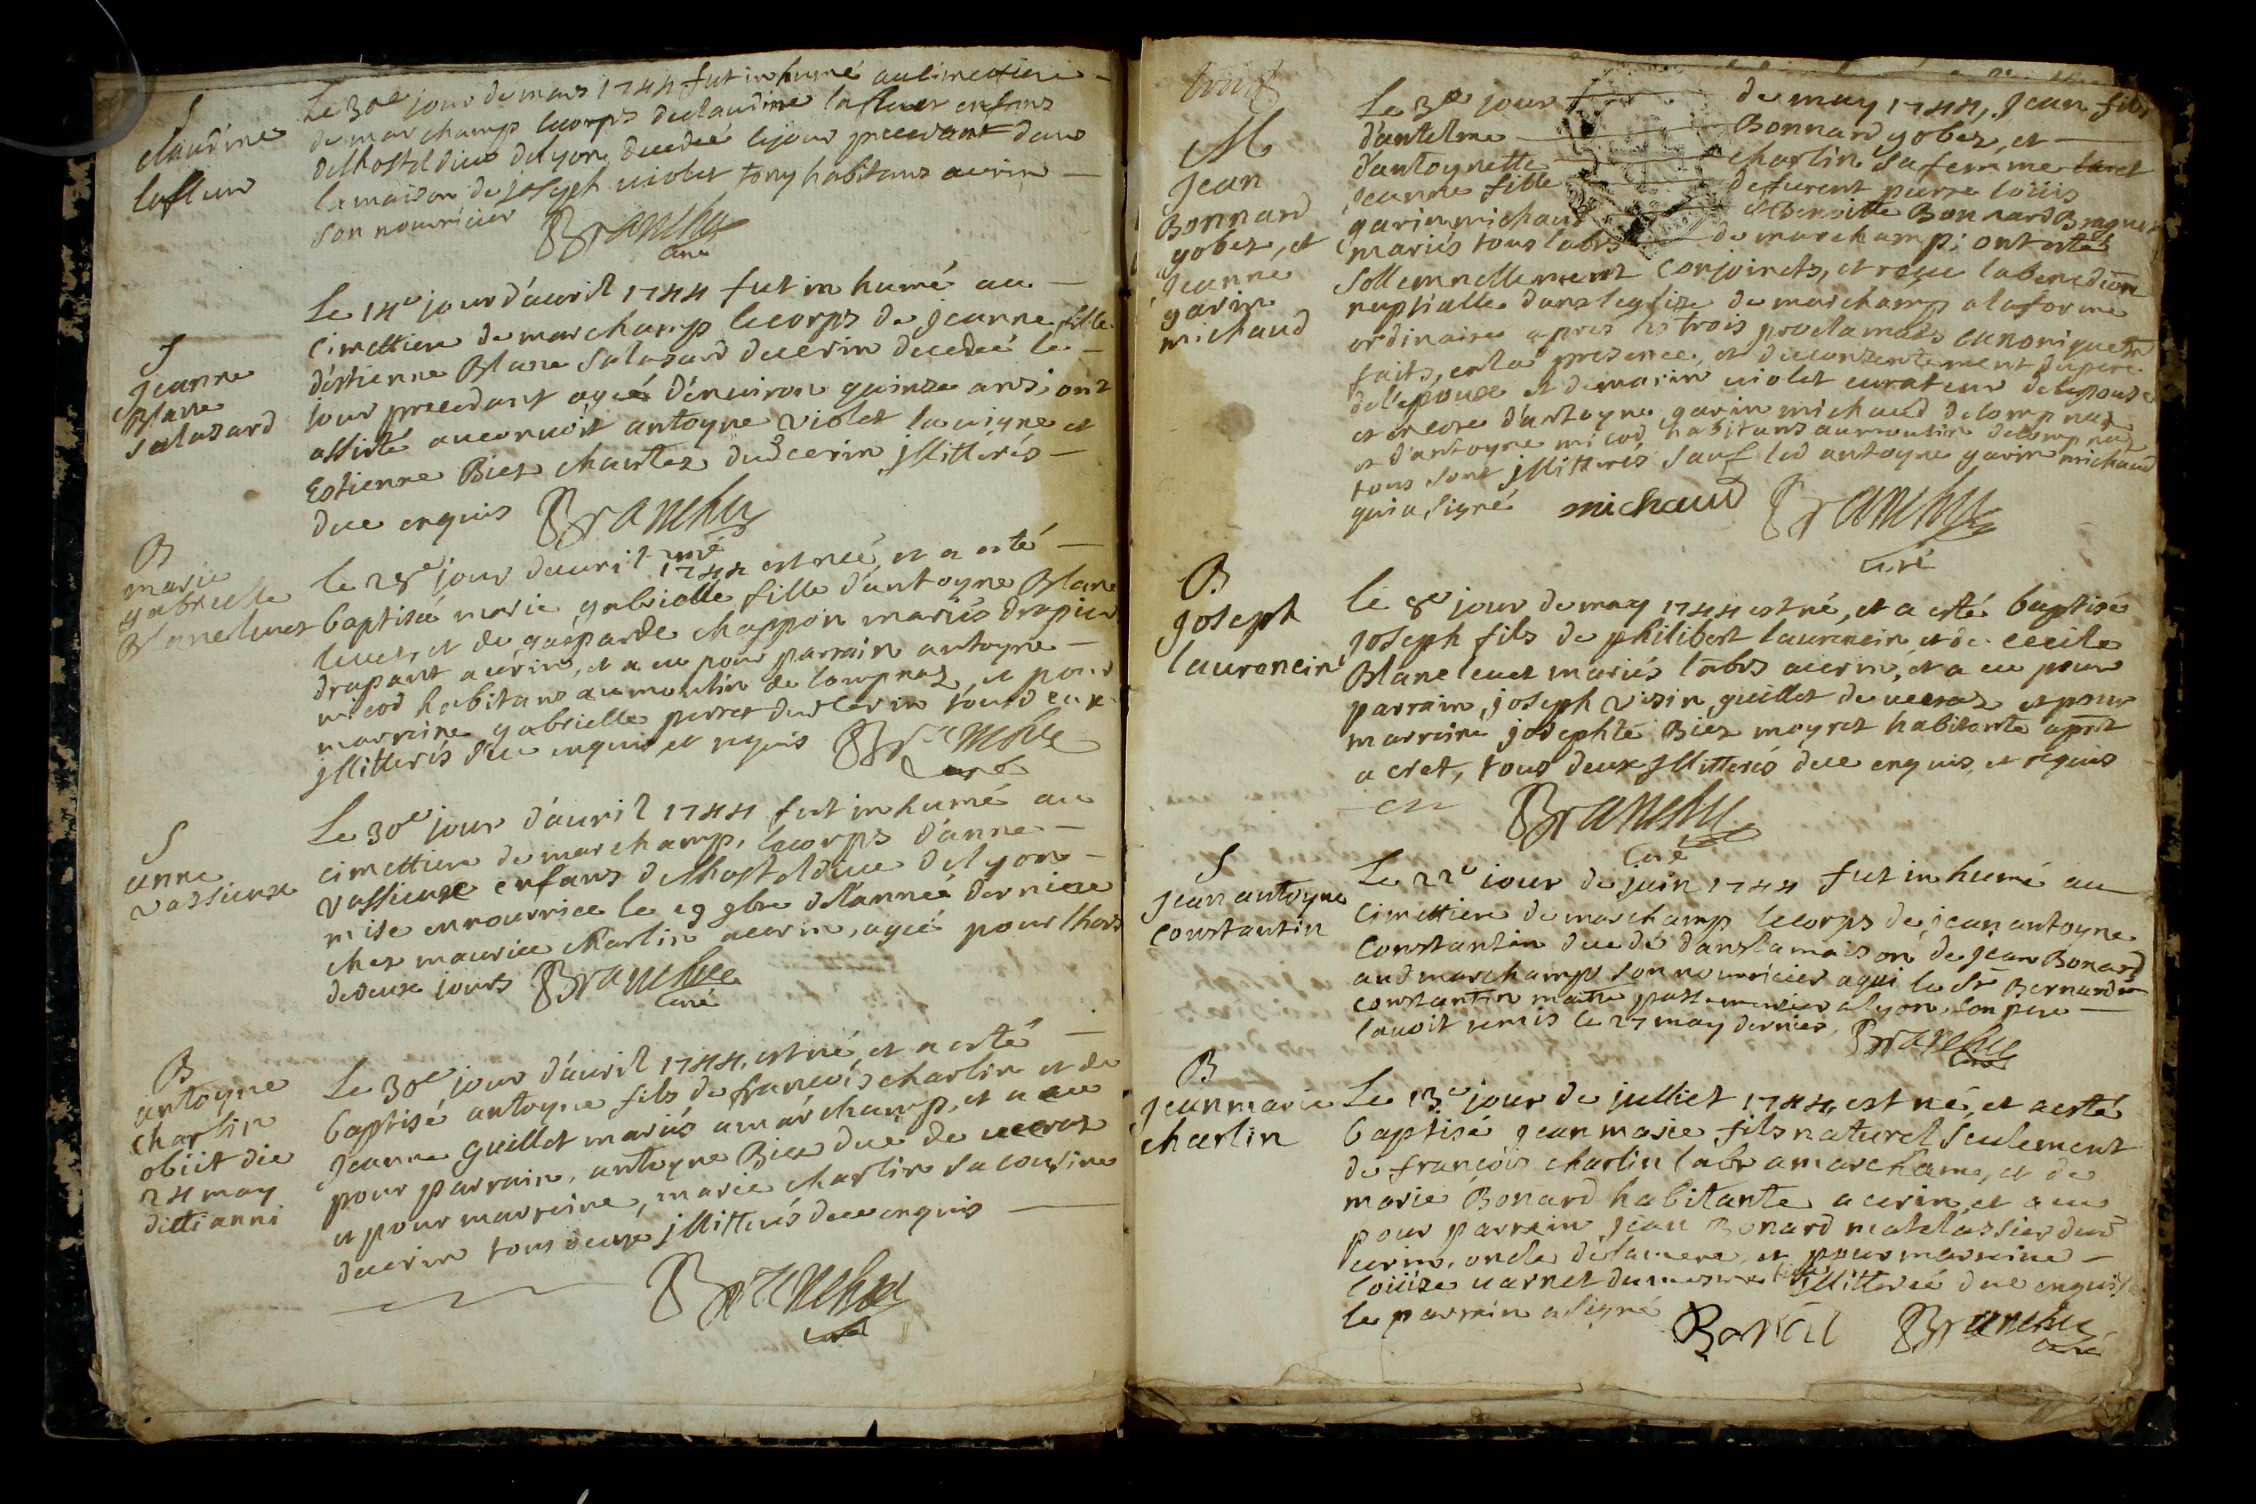 S
claudine
lafleur
Le 30e jour de mars 1744 fut inhumé au cimettiere
de marchamp le corps de claudine lafleur enfans
de lhostel dieu de lyon decedée le jour precedant dans
la maison de joseph violet tony habitans a cerin
son nourricier Branchu
curé
S
Jeanne
Blanc
salasard
Le 14e jour d'avril 1744 fut inhumé au
cimettiere de marchamp le corps de jeanne fille
d'estienne Blanc salasard de cerin decedée le
jour precedant agée d'environ quinze ans ont
assisté au convoit antoyne violet la vigne et
Estienne Biez chartez dud cerin jllitterés
de ce enquis Branchu
curé
B
marie
gabrielle
Blanc luvet
le 28e jour d'avril 1744 est née, et a esté
baptisée marie gabrielle fille d'antoyne Blanc
luvet, et de gasparde chappon mariés drapier
drapant a cerin, et a eu pour parrain antoyne
micod habitans au moulin de lompnaz, et pour
marraine gabrielle perret dud cerin tous deux
jllitterés de ce enquis et requis Branchu
curé
S
anne
vassieux
Le 30e jour d'avril 1744 fut inhumé au
cimettiere de marchamp, le corps d'anne
vassieux enfans de lhostel dieu de lyon
mise en nourrice le 29 9bre de lannée derniere
chez maurice charlin a cerin, agée pour lhors
de deux jours Branchu
curé
B
antoyne
charlin
obiit die
24 may
dicti anni
Le 30e jour d'avril 1744 est né, et a esté
baptisé antoyne fils de françois charlin et de
Jeanne guillet mariés a marchamp, et a eu
pour parrain, antoyne Biez duc de veeraz
et pour marraine, marie charlin sa cousine
de cerin tous deux jllitterés de ce enquis
Branchu
curé
M
Jean
Bonnard
gobez, et
Jeanne
garin
michaud
Le 3e jour de may 1744, Jean fils
d'antelme Bonnard gobez, et
d'antoynette charlin sa femme
Jeanne fille de furent pierre loüis
garin michaud et Benoitte Bonnard Bragnet
mariés tous labrs de marchamp; ont estés
sollemnellement conjoincts, et reçu la benediõn
nuptialle dans leglize de marchamp a la forme
ordinaire apres les trois proclamats canoniquem̃
faits, en la presence, et du consentement du pere
de l'epoux et de marin violet curateur de lepouse
et encore d'antoyne garin michaud de lompnaz
et d'antoyne micod habitans au moulin de lompnaz
tous sont jllitterés sauf led antoyne garin michaud
qui a signé michaud Branchu
curé
B
joseph
laurencin
le 8e jour de may 1744 est né, et a esté baptisé
joseph fils de philibert laurencin, et de cecile
Blanc luvet mariés labrs a cerin, et a eu pour
parrain, joseph vizin guillet de veeraz et pour
marraine josephte Biez moyret habitante
a cret, tous deux jllitterés de ce enquis et requis
Branchu
curé
S
Jean antoyne
constantin
Le 22e jour de juin 1744 fut inhumé au
cimettiere de marchamp le corps de jean antoyne
constantin decedé dans la maison de jean Bonard
aud marchamp son nourricier a qui le Sr Bernardin
constantin maitre passementier a lyon, son pere
lavoit remis le 27 may dernier. Branchu
curé
B
jean marie
charlin
Le 13e jour de julliet 1744 est né, et a esté
baptisé jean marie fils naturel seulement
de françois charlin labr a marchamp, et de
marie Bonard habitante a cerin, et a eu
pour parrain jean Bonard matelassier dud
cerin, oncle de la mere, et pour marraine
loüize varnet jllitterée de ce enquise
le parrain a signé Bonard Branchu
curé